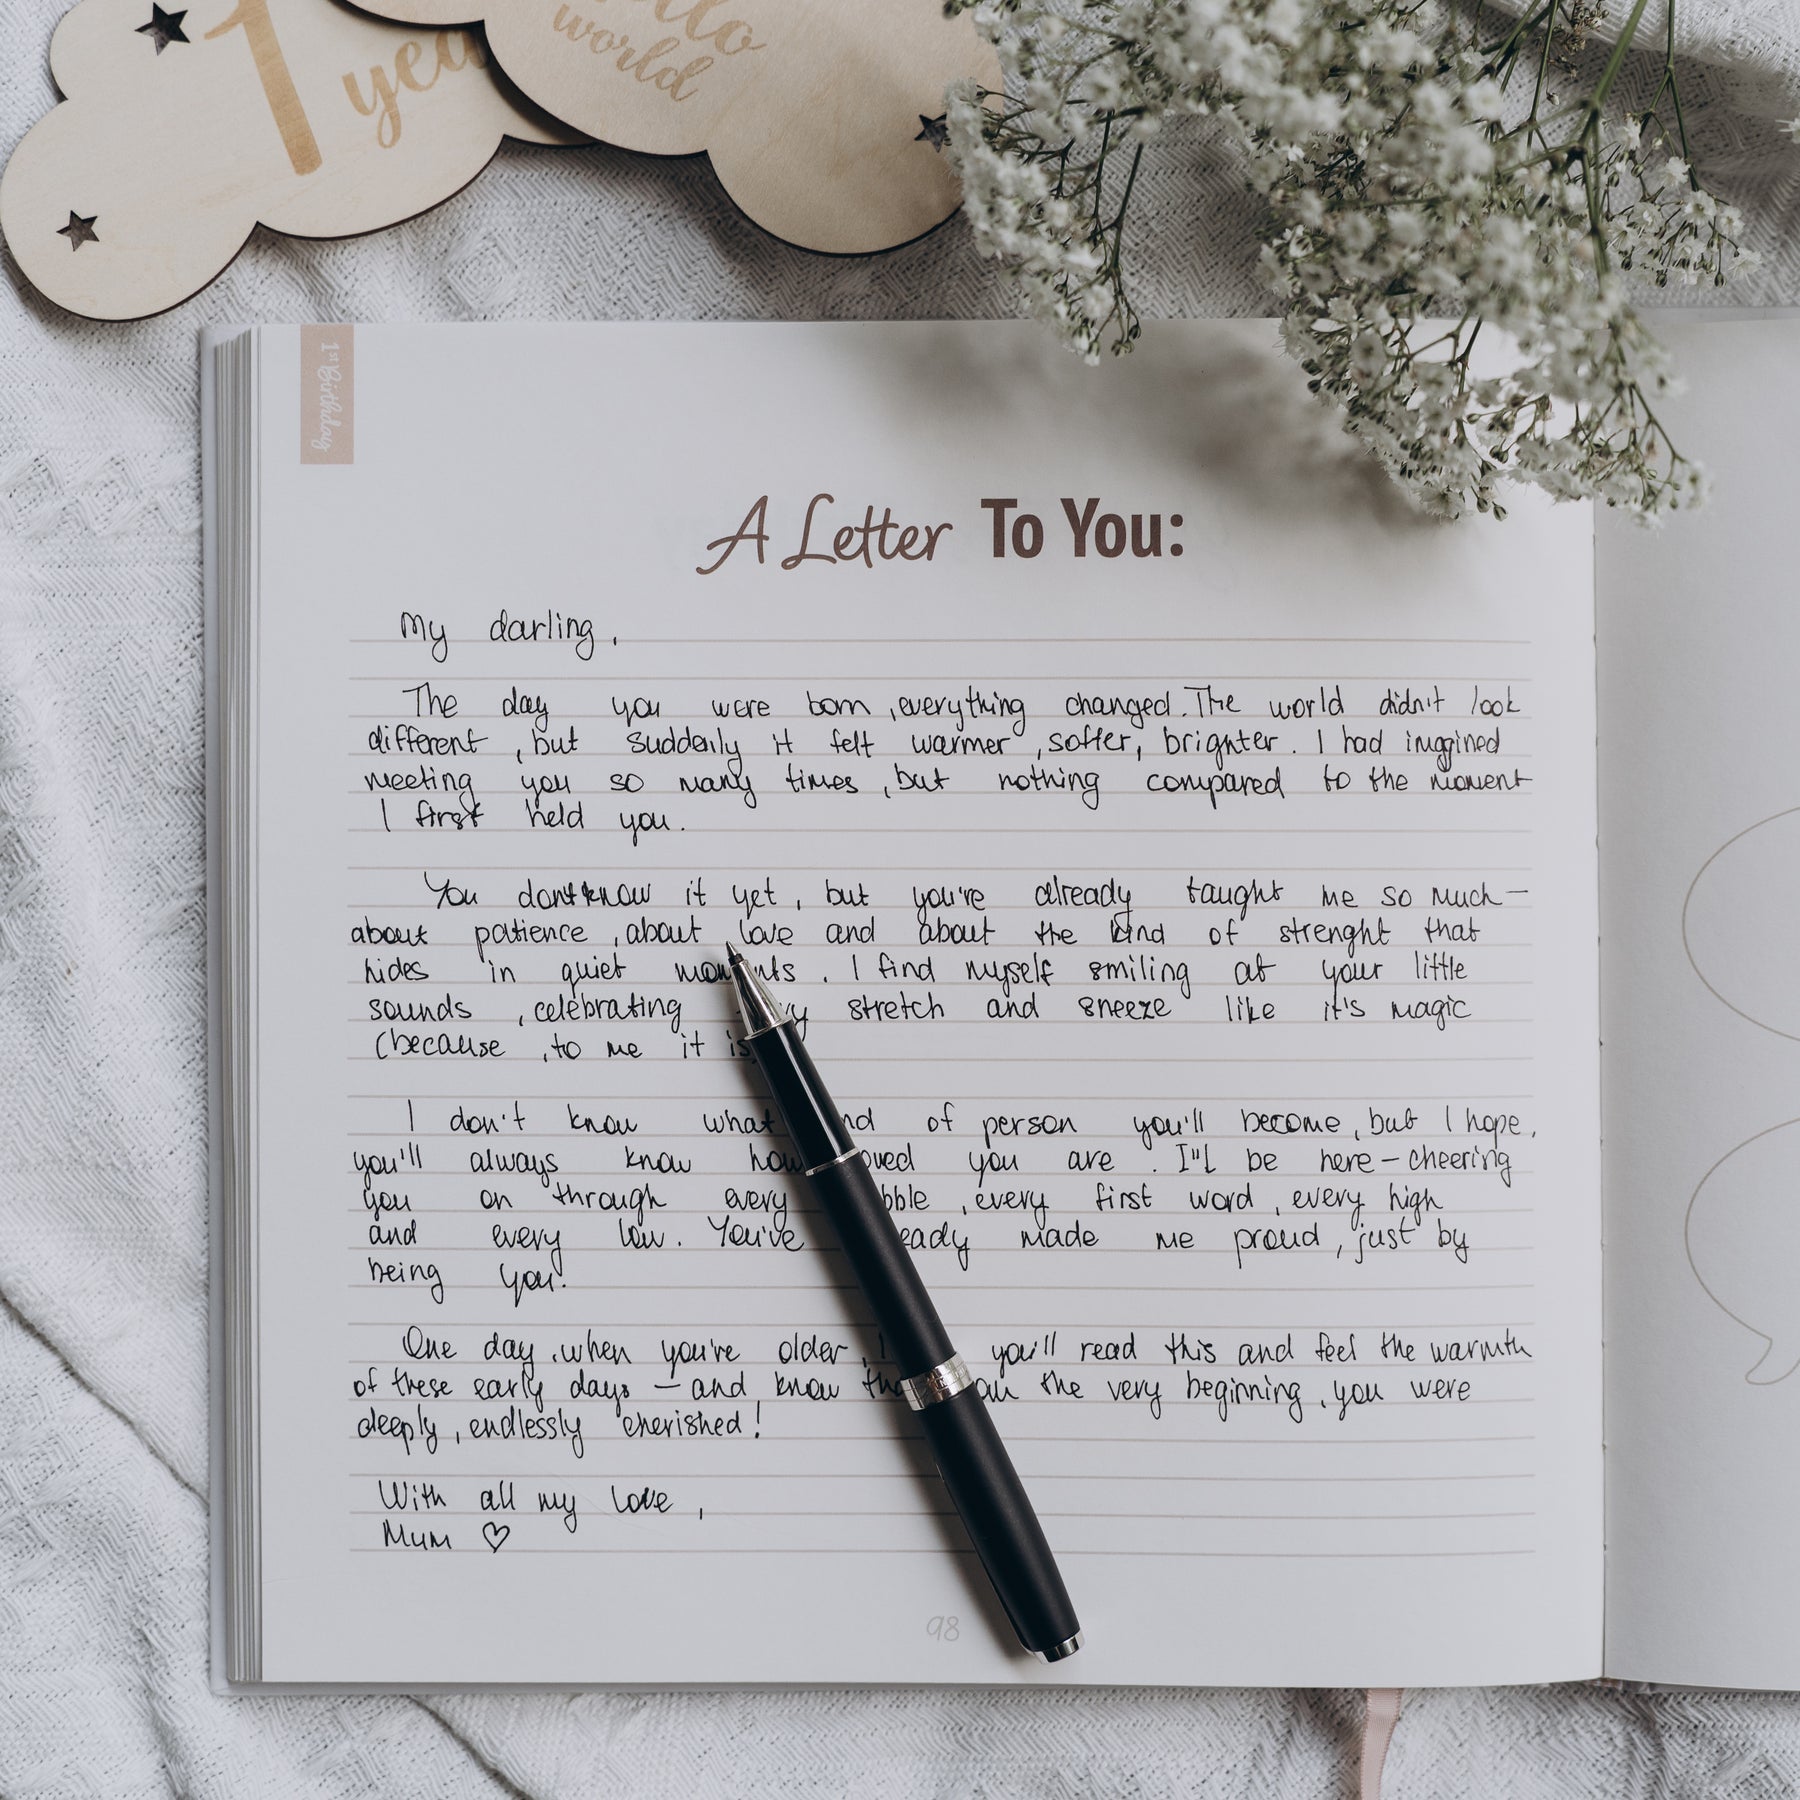 1 yea
llo
world
1st Birthday
A Letter To You:
My darling,
The day you were born, everything changed. The world didn't look
different, but suddenly it felt warmer, softer, brighter. I had imagined
meeting you so many times, but nothing compared to the moment
I first held you.
You don't know it yet, but you're already taught me so much —
about patience, about love and about the kind of strenght that
hides in quiet mom nts. I find myself smiling at your little
sounds, celebrating ry stretch and sneeze like it's magic
(because, to me it is,
I don't know what nd of person you'll become, but I hope,
you'll always know how oved you are. I'll be here — cheering
you on through every bble, every first word, every high
and every low. You've eady made me proud, just by
being you.
One day, when you're older, I you'll read this and feel the warmth
of these early days — and know tha om the very beginning, you were
deeply, endlessly cherished!
With all my love,
Mum ♡
98